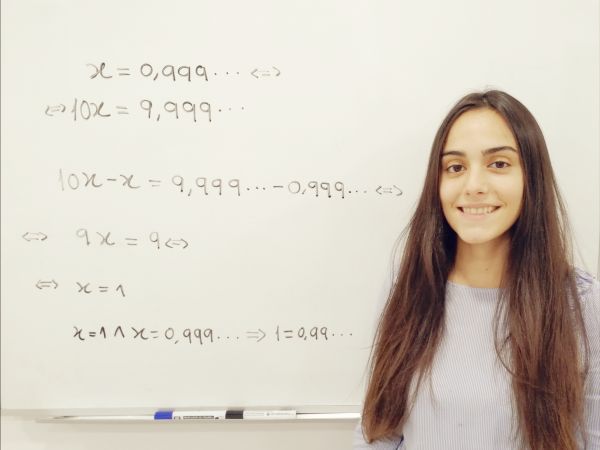 x = 0,999... <=>
<=> 10x = 9,999...
10x-x = 9,999...-0,999... <=>
<=> 9x = 9 <=>
<=> x = 1
x=1 ∧ x=0,999... => 1=0,99...